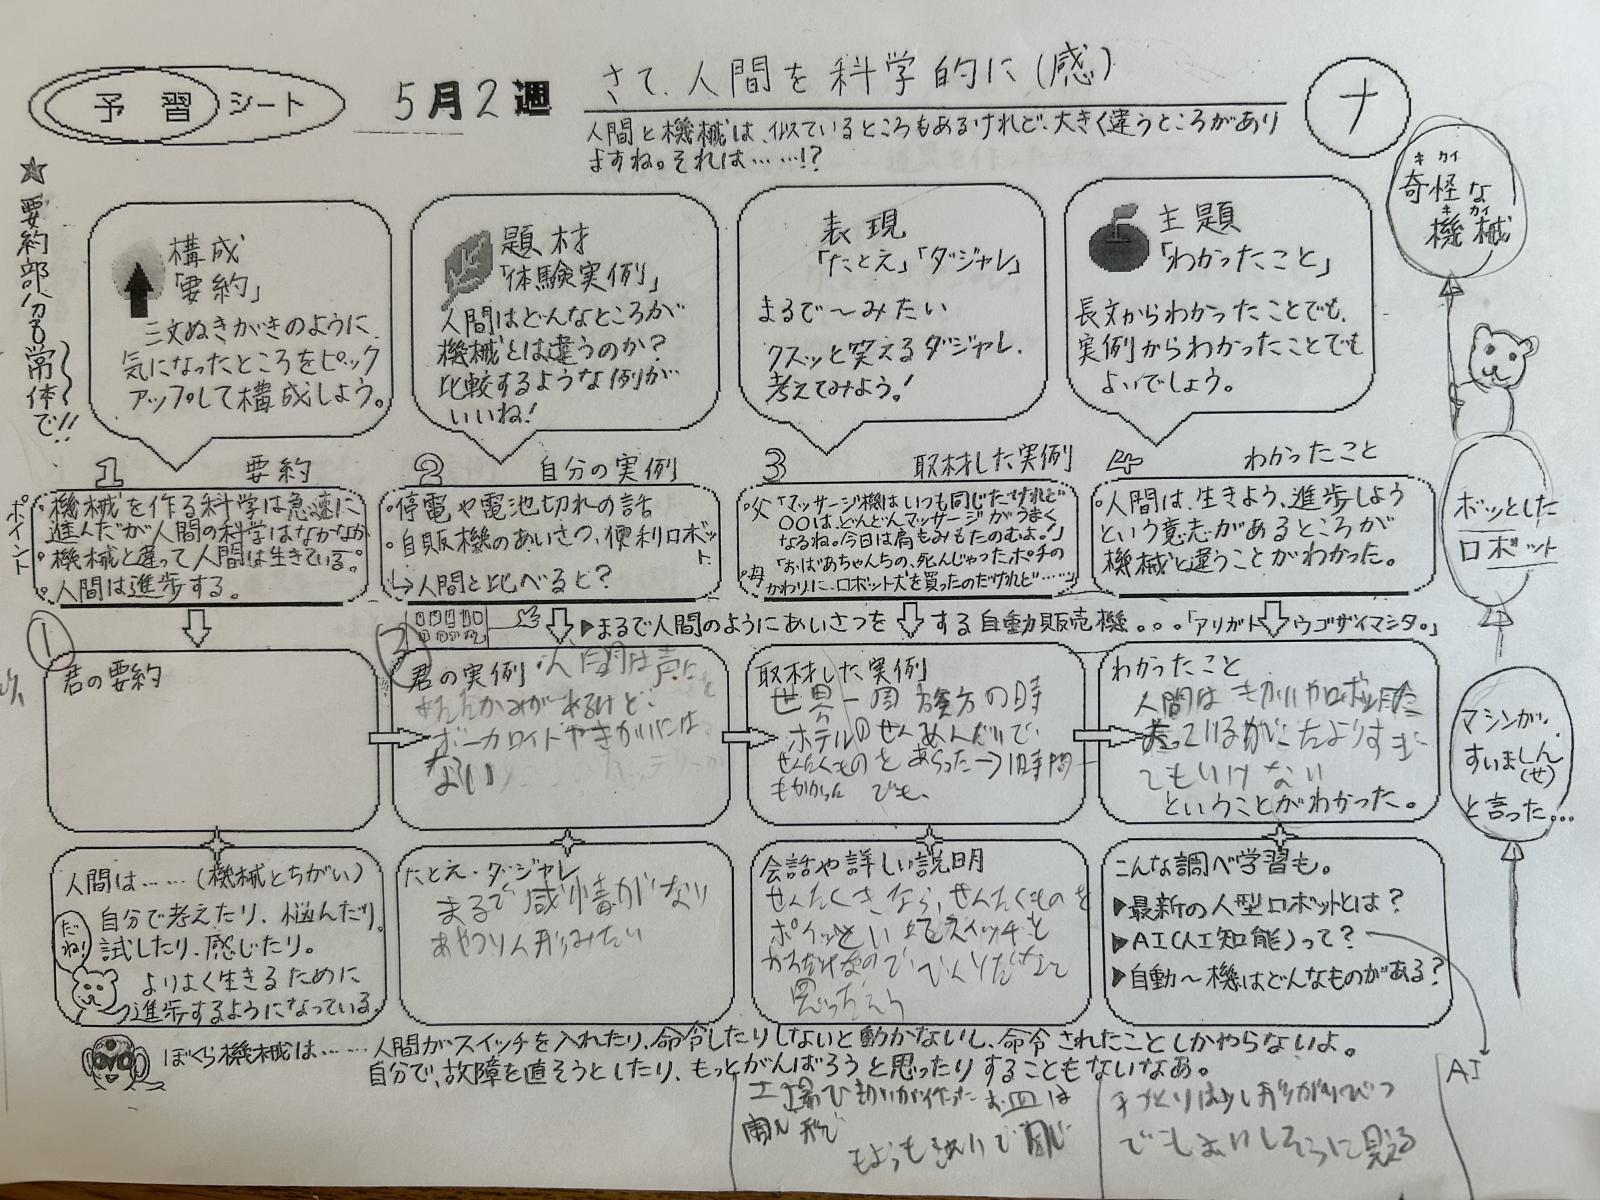 予習シート
5月2週
さて、人間を科学的に(感)
人間と機械は、似ているところもあるけれど、大きく違うところがあり
ますね。それは……!?
ナ
★要約部分も常体で!!
構成
「要約」
三文ぬきがきのように
気になったところをピック
アップして構成しよう。
題材
「体験実例」
人間はどんなところが
機械とは違うのか?
比較するような例が
いいね!
表現
「たとえ」「ダジャレ」
まるで〜みたい
クスッと笑えるダジャレ、
考えてみよう!
主題
「わかったこと」
長文からわかったことでも、
実例からわかったことでも
よいでしょう。
キカイ
奇怪な
キカイ
機械
ボッとした
ロボット
マシンが、
すいましん
(せ)
と言った…
ポイント
1 要約
・機械を作る科学は急速に
進んだが人間の科学はなかなか
・機械と違って人間は生きている。
・人間は進歩する。
2 自分の実例
・停電や電池切れの話
・自販機のあいさつ、便利ロボット
↳人間と比べると?
3 取材した実例
・父「マッサージ機はいつも同じだけれど
〇〇は、どんどんマッサージがうまく
なるね。今日は肩もみもたのむよ。」
・母「おばあちゃんちの、死んじゃったポチの
かわりに、ロボット犬を買ったのだけれど……」
4 わかったこと
・人間は、生きよう、進歩しよう
という意志があるところが
機械と違うことがわかった。
▶まるで人間のようにあいさつをする自動販売機。。。「アリガトウゴザイマシタ。」
①
君の要約
②
君の実例
人間は声に
ボーカロイドやきかいには
ない
取材した実例
世界一周旅行の時
ホテルのせんめんだいで
せんたくものをあらった→1時間
もかかった でも、
わかったこと
人間はきかいやロボットに
たよりすぎ
てもいけない
ということがわかった。
人間は……(機械とちがい)
自分で考えたり、悩んだり、
試したり、感じたり。
よりよく生きるために
進歩するようになっている。
だね!
たとえ・ダジャレ
まるで感情がない
あやつり人形みたい
会話や詳しい説明
せんたくきなら、せんたくものを
ポイッといれてスイッチを
こんな調べ学習も。
▶最新の人型ロボットとは?
▶AI(人工知能)って?
▶自動〜機はどんなものがある?
ぼくら機械は……人間がスイッチを入れたり、命令したりしないと動かないし、命令されたことしかやらないよ。
自分で、故障を直そうとしたり、もっとがんばろうと思ったりすることもないなあ。
工場で きかいが作ったお皿は
同じ形で
もようもきれいで同じ
手づくりは少し形がいびつ
でもおいしそうに見える
AI